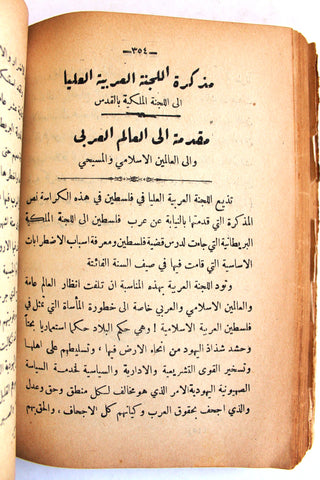 -٣٥٤-
مذكرة اللجنة العربية العليا
الى اللجنة الملكية بالقدس
مقدمة الى العالم العربي
والى العالمين الاسلامي والمسيحي
تذيع اللجنة العربية العليا في فلسطين في هذه الكراسة نص
المذكرة التي قدمتها بالنيابة عن عرب فلسطين الى اللجنة الملكية
البريطانية التي جاءت لدرس قضية فلسطين ومعرفة اسباب الاضطرابات
الاساسية التي قامت فيها في صيف السنة الفائتة
وتود اللجنة العربية بهذه المناسبة ان تلفت انظار العالم عامة
والعالمين الاسلامي والعربي خاصة الى خطورة المأساة التي تمثل في
فلسطين العربية الاسلامية ! وهي حكم البلاد حكما استعماريا بحتاً
وحشد شذاذ اليهود من انحاء الارض فيها، وتسليطهم على اهلها
وتسخير القوى التشريعية والادارية والسياسية لخدمة السياسة
الصهيونية اليهودية الامر الذي هو مخالف لكل منطق وحق وعدل
والذي اجحف بحقوق العرب وكيانهم كل الاجحاف، والحق بهم